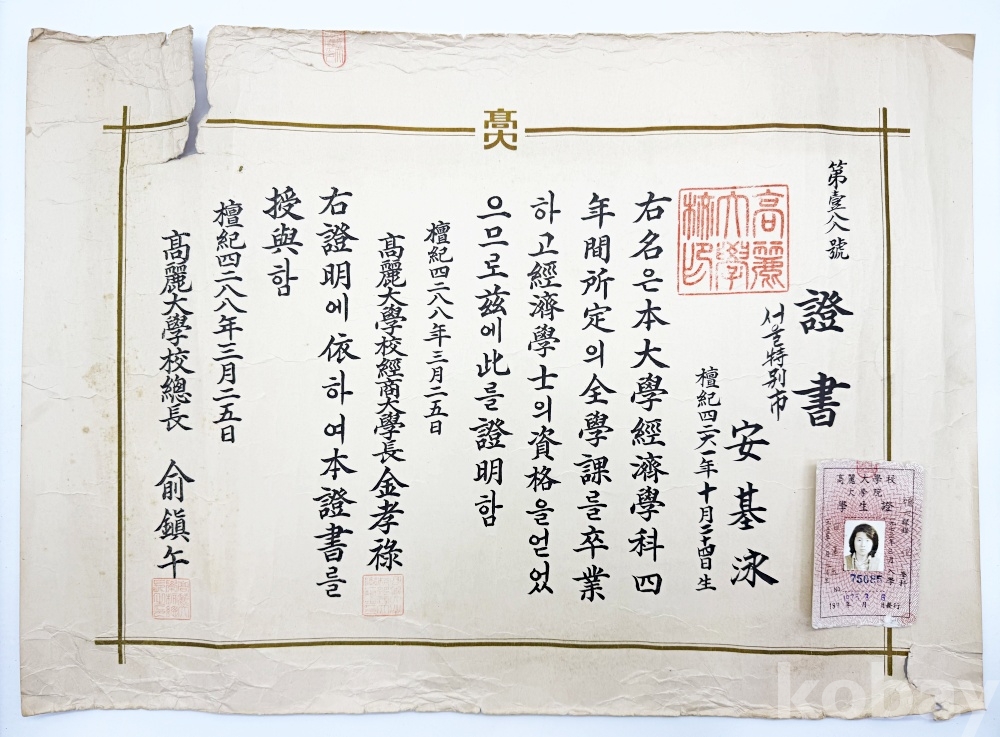 高大
第壹八八號
證書
서울特別市
安基泳
檀紀四二六一年十月二十四日生
高麗大學校印
右名은本大學經濟學科四
年間所定의全學課를卒業
하고經濟學士의資格을얻었
으므로玆에此를證明함
檀紀四二八八年三月二五日
高麗大學校經商大學長 金孝祿
右證明에依하여本證書를
授與함
檀紀四二八八年三月二五日
高麗大學校總長 俞鎭午
高麗大學校
大學院
學生證
75685
kobay